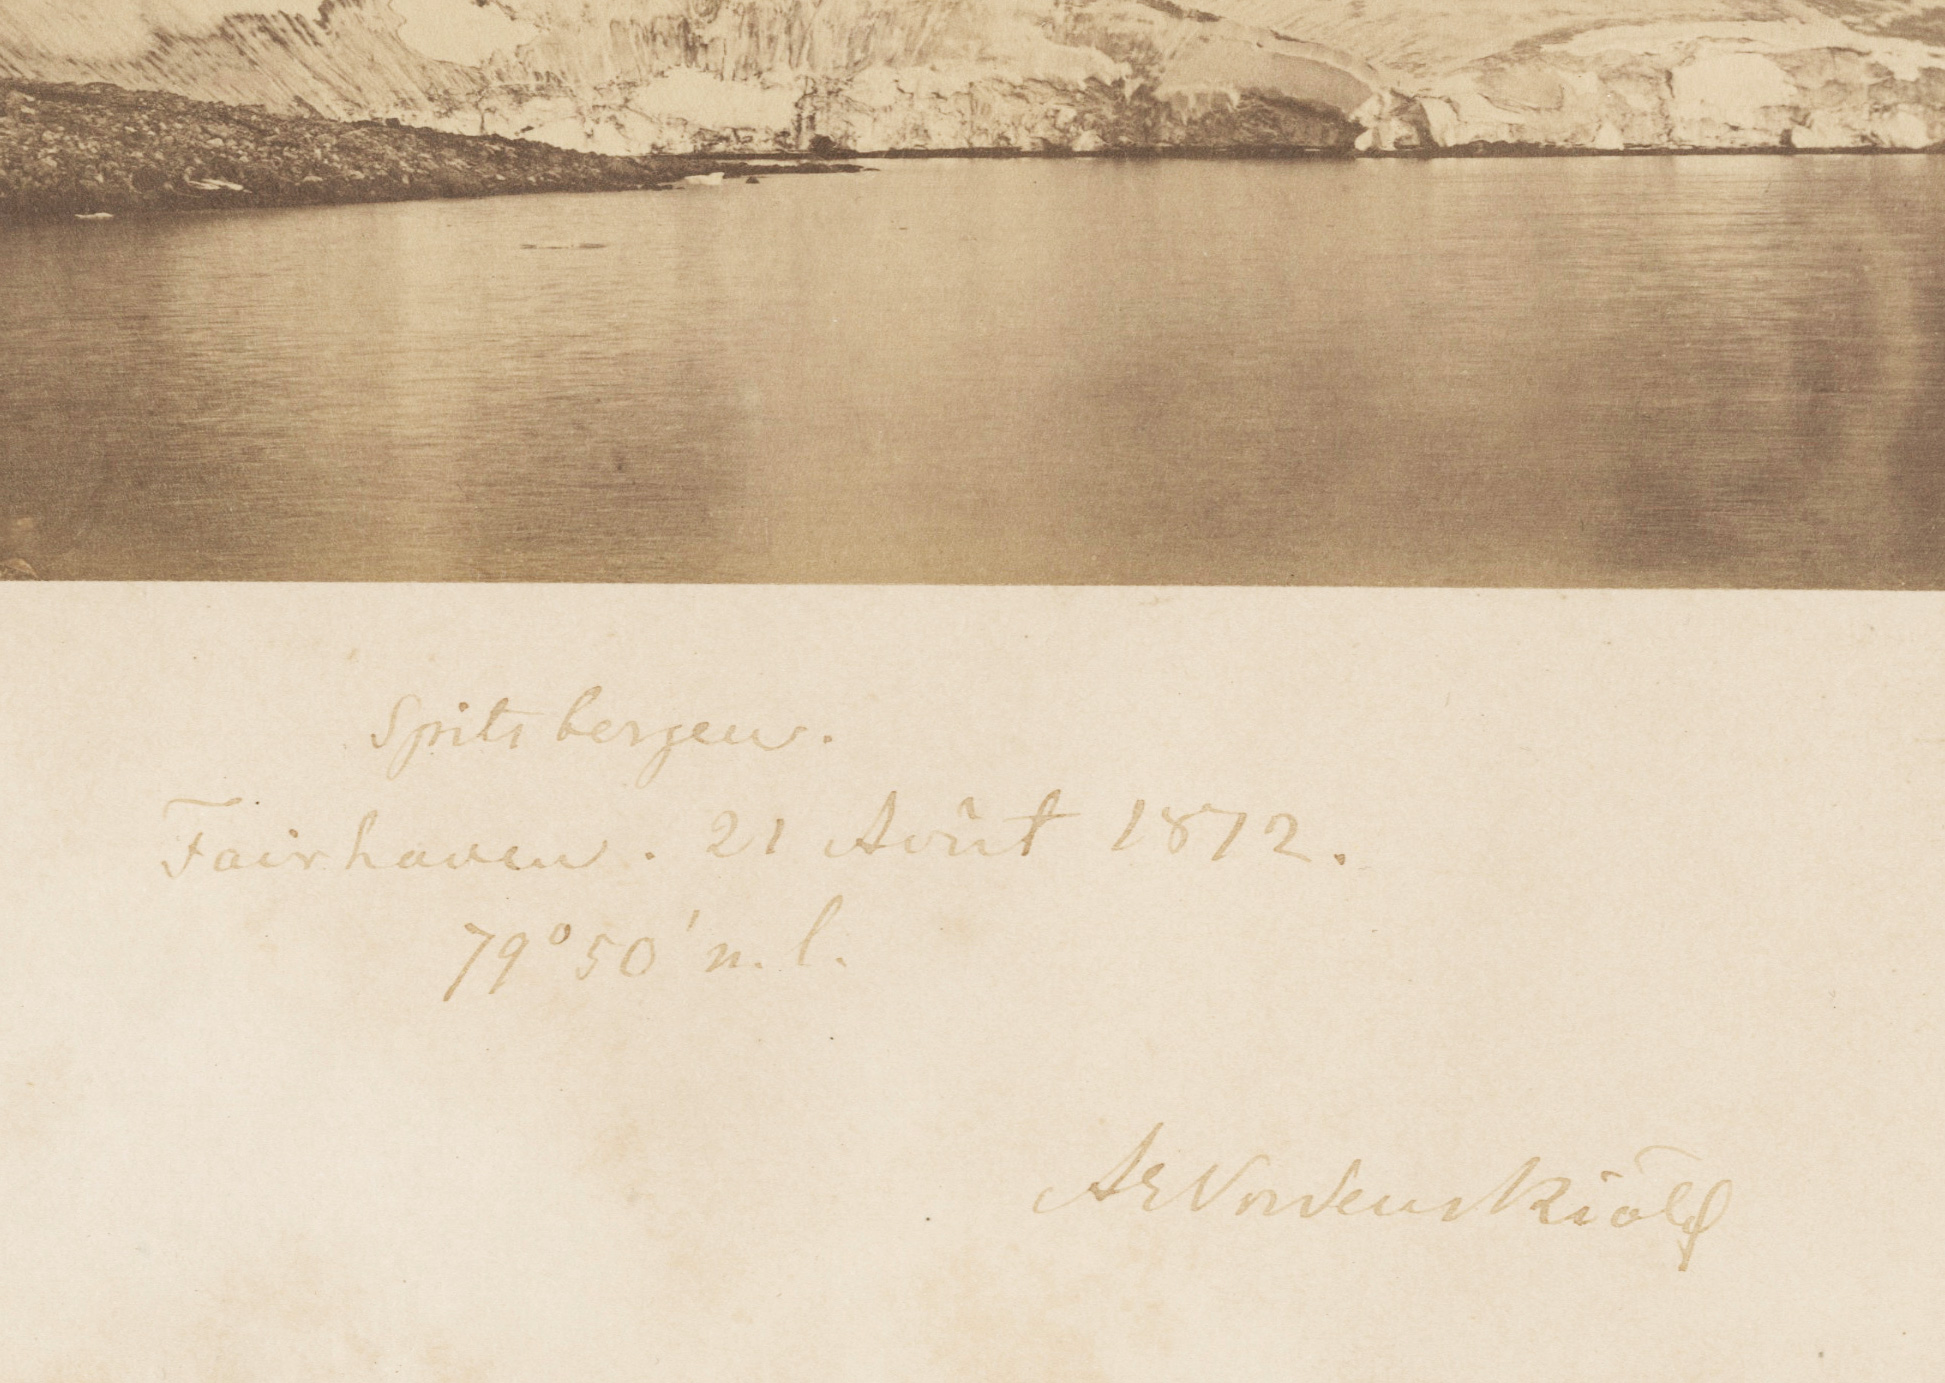 Spitsbergen.
Fairhaven. 21 Août 1872.
79° 50' n. l.
AENordenskiöld